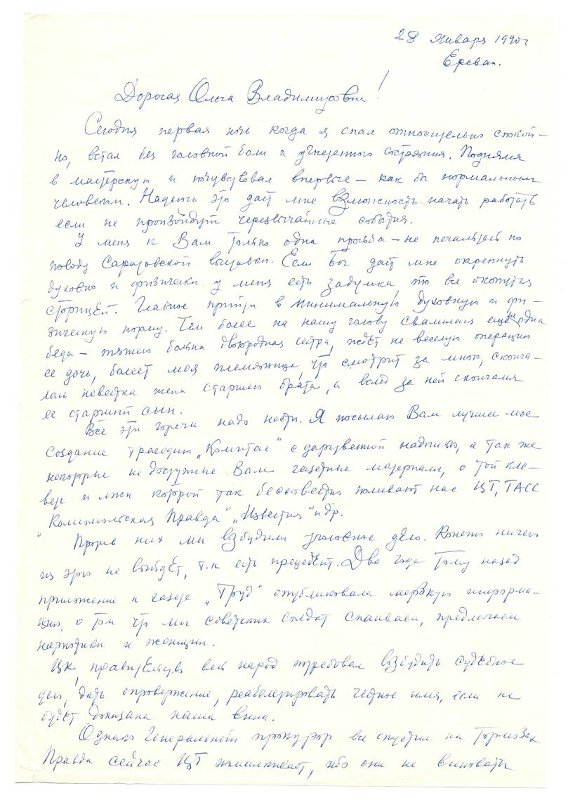 28 января 1990 г
Ереван.
Дорогая Ольга Владимировна!
Сегодня первая ночь когда я спал относительно спокой-
но, встал без головной боли и угнетенного состояния. Поднялся
в мастерскую и почувствовал впервые – как бы нормальным
человеком. Надеюсь это даст мне возможность начать работать
если не произойдут черезвычайные события.
У меня к Вам только одна просьба – не печальтесь по
поводу Саратовской выставки. Если Бог даст мне окрепнуть
духовно и физически, у меня есть задумка, то все окупится
сторицей. Главное придти в минимальную духовную и фи-
зическую норму. Тем более на нашу голову свалилась ещё одна
беда – тяжело больна двоюродная сестра, ждёт не веселую операцию
ее дочь, болеет моя племянница, что смотрит за мной, сконча-
лась невестка жена старшего брата, а вслед за ней скончался
ее старший сын.
Все эти горечи надо нести. Я посылаю Вам лучшее мое
создание трагедию "Комитас" с дарственной надписью, а так же
некоторые недоступные Вам газетные материалы, о той кле-
вете и лжи которой так бессовестно поливают нас ЦТ, ТАСС
"Комсомольская Правда" "Известия" и др.
Против них мы возбудили уголовное дело. Конечно ничего
из этого не выйдет, т.к есть прецедент. Два года тому назад
приложение к газете "Труд" опубликовало мерзкую информа-
цию, о том что мы советских солдат спаиваем, предлагаем
наркотики и женщин.
ЦК, правительство весь народ требовал возбудить судебное
дело, дать опровержение, реабилитировать честное имя, если не
будет доказана наша вина.
Однако Генеральный прокурор все спустил на тормозах
Правда сейчас ЦТ что они не виноваты